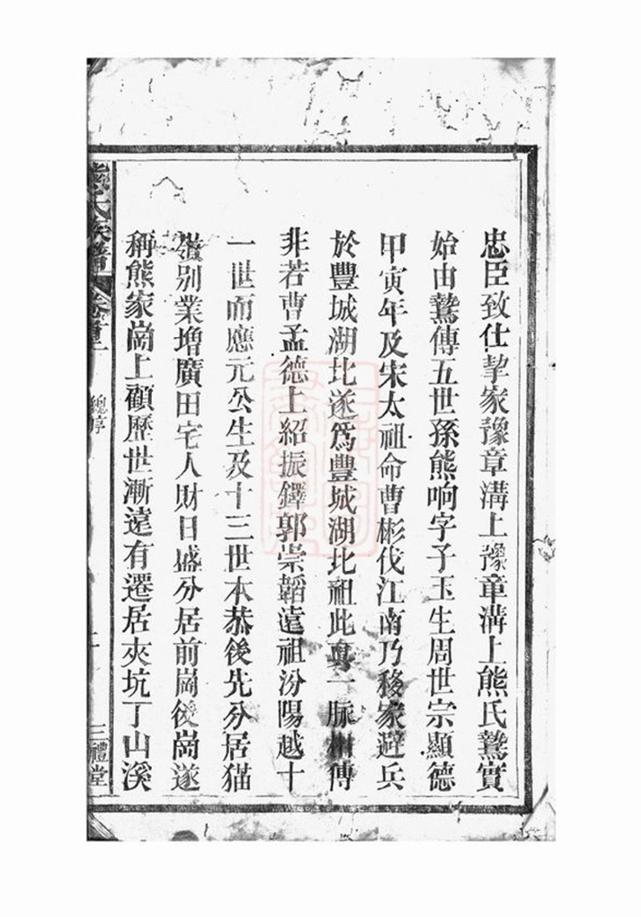 忠臣致仕挈家豫章溝上豫章溝上熊氏鶩實
始由鶩傳五世孫熊响字子玉生周世宗顯德
甲寅年及宋太祖命曹彬伐江南乃移家避兵
於豐城湖北遂爲豐城湖北祖此真一脈相傳
非若曹孟德上紹振鐸郭崇韜遠祖汾陽越十
一世而應元公生及十三世本恭後先分居猫
別業增廣田宅人財日盛分居前崗後崗遂
稱熊家崗上顧歷世漸遠有遷居夾坑丁山溪
熊氏族譜 卷首
總序
三禮堂